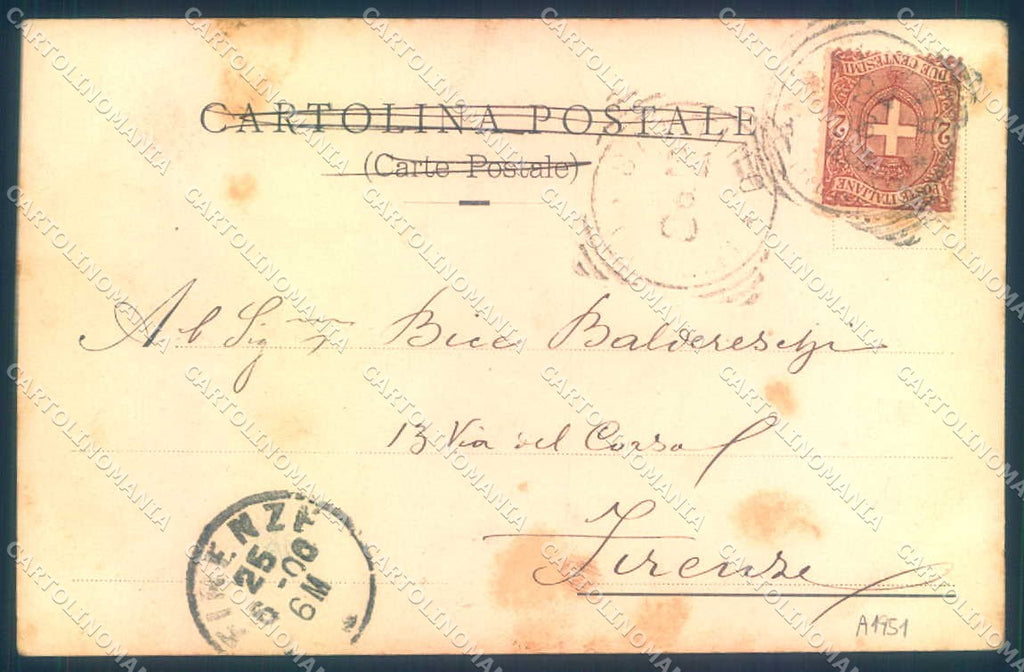 CARTOLINA POSTALE
(Carte Postale)
DUE CENTESIMI
2 2
POSTE ITALIANE
Al Sig
Bice Baldereschi
13 Via del Corso
Firenze
FIRENZE
25
6-00
6M
A1951
CARTOLINOMANIA